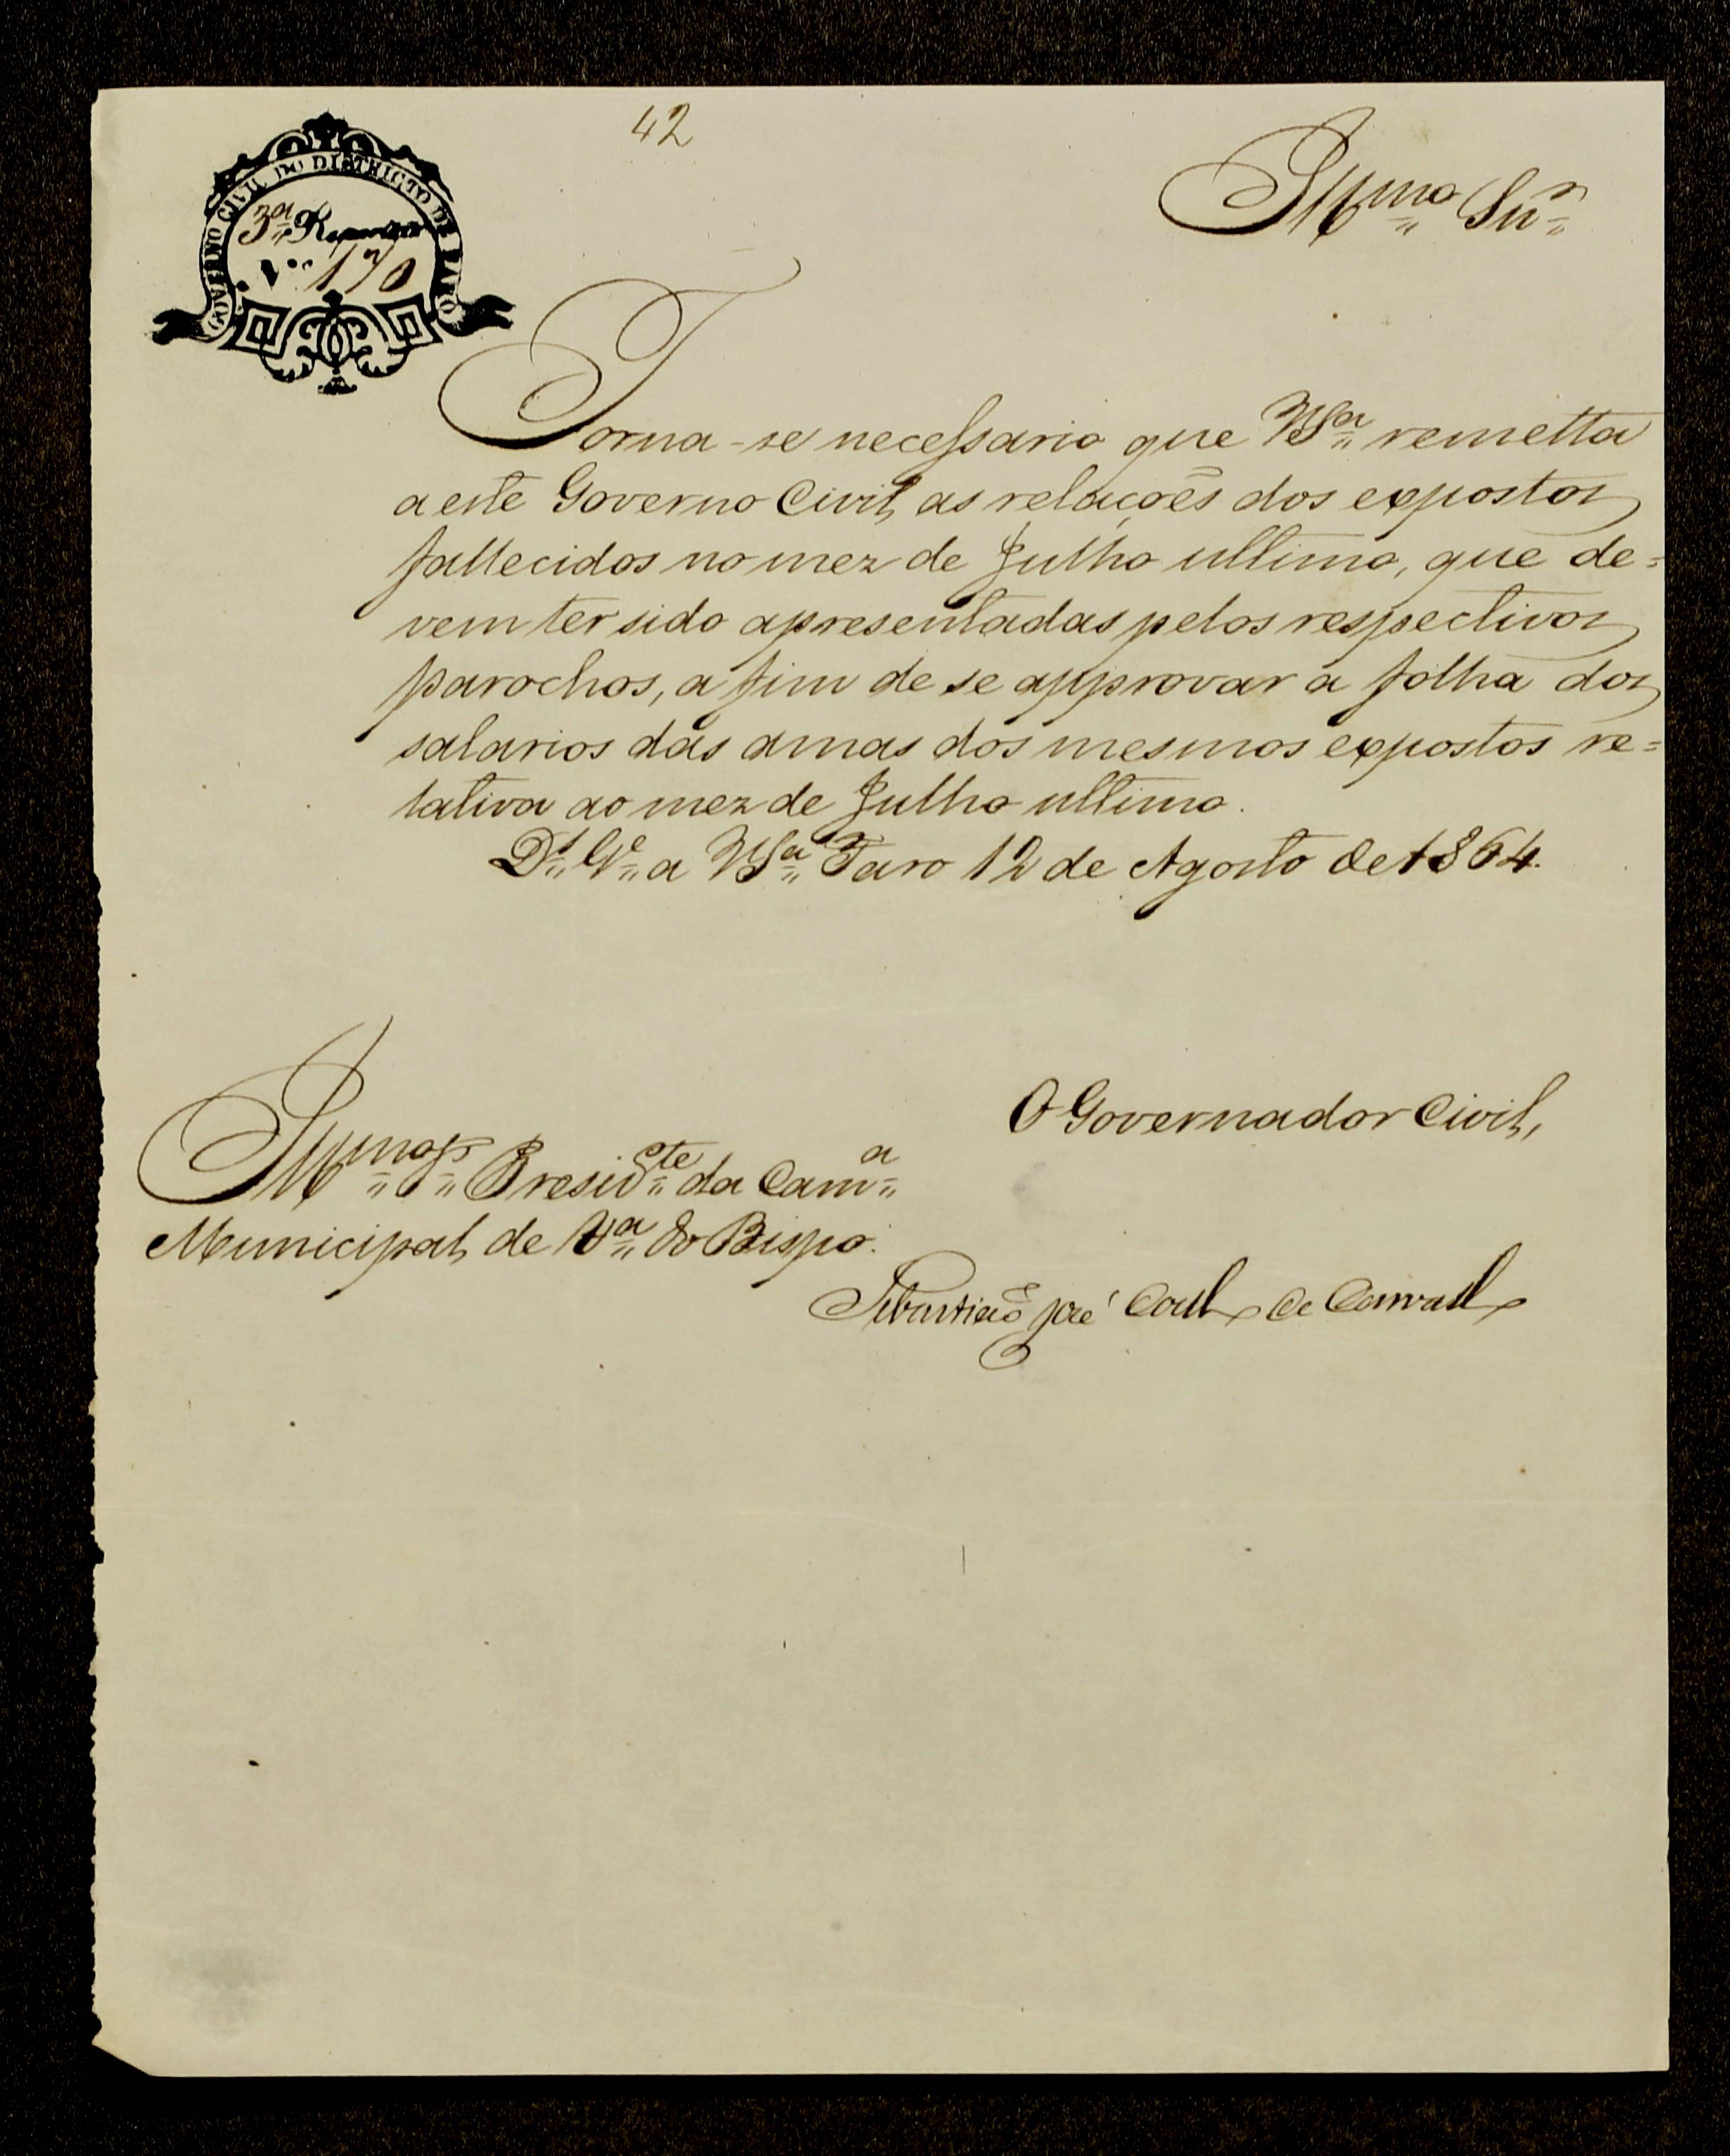 42
GOVERNO CIVIL DO DISTRICTO DE FARO
3ª Repartição
N.º 170
Illmo Snr
Torna-se necessario que VSª remetta
a este Governo Civil, as relações dos expostos
fallecidos no mez de Julho ultimo, que de=
vem ter sido apresentadas pelos respectivos
parochos, a fim de se approvar a folha dos
salarios das amas dos mesmos expostos re=
lativa ao mez de Julho ultimo.
Ds Ge a VSª Faro 12 de Agosto de 1864.
O Governador Civil,
Illmo Sr Presidte da Camª
Municipal de Vª do Bispo.
Sebastião José Coelho de Carvalho